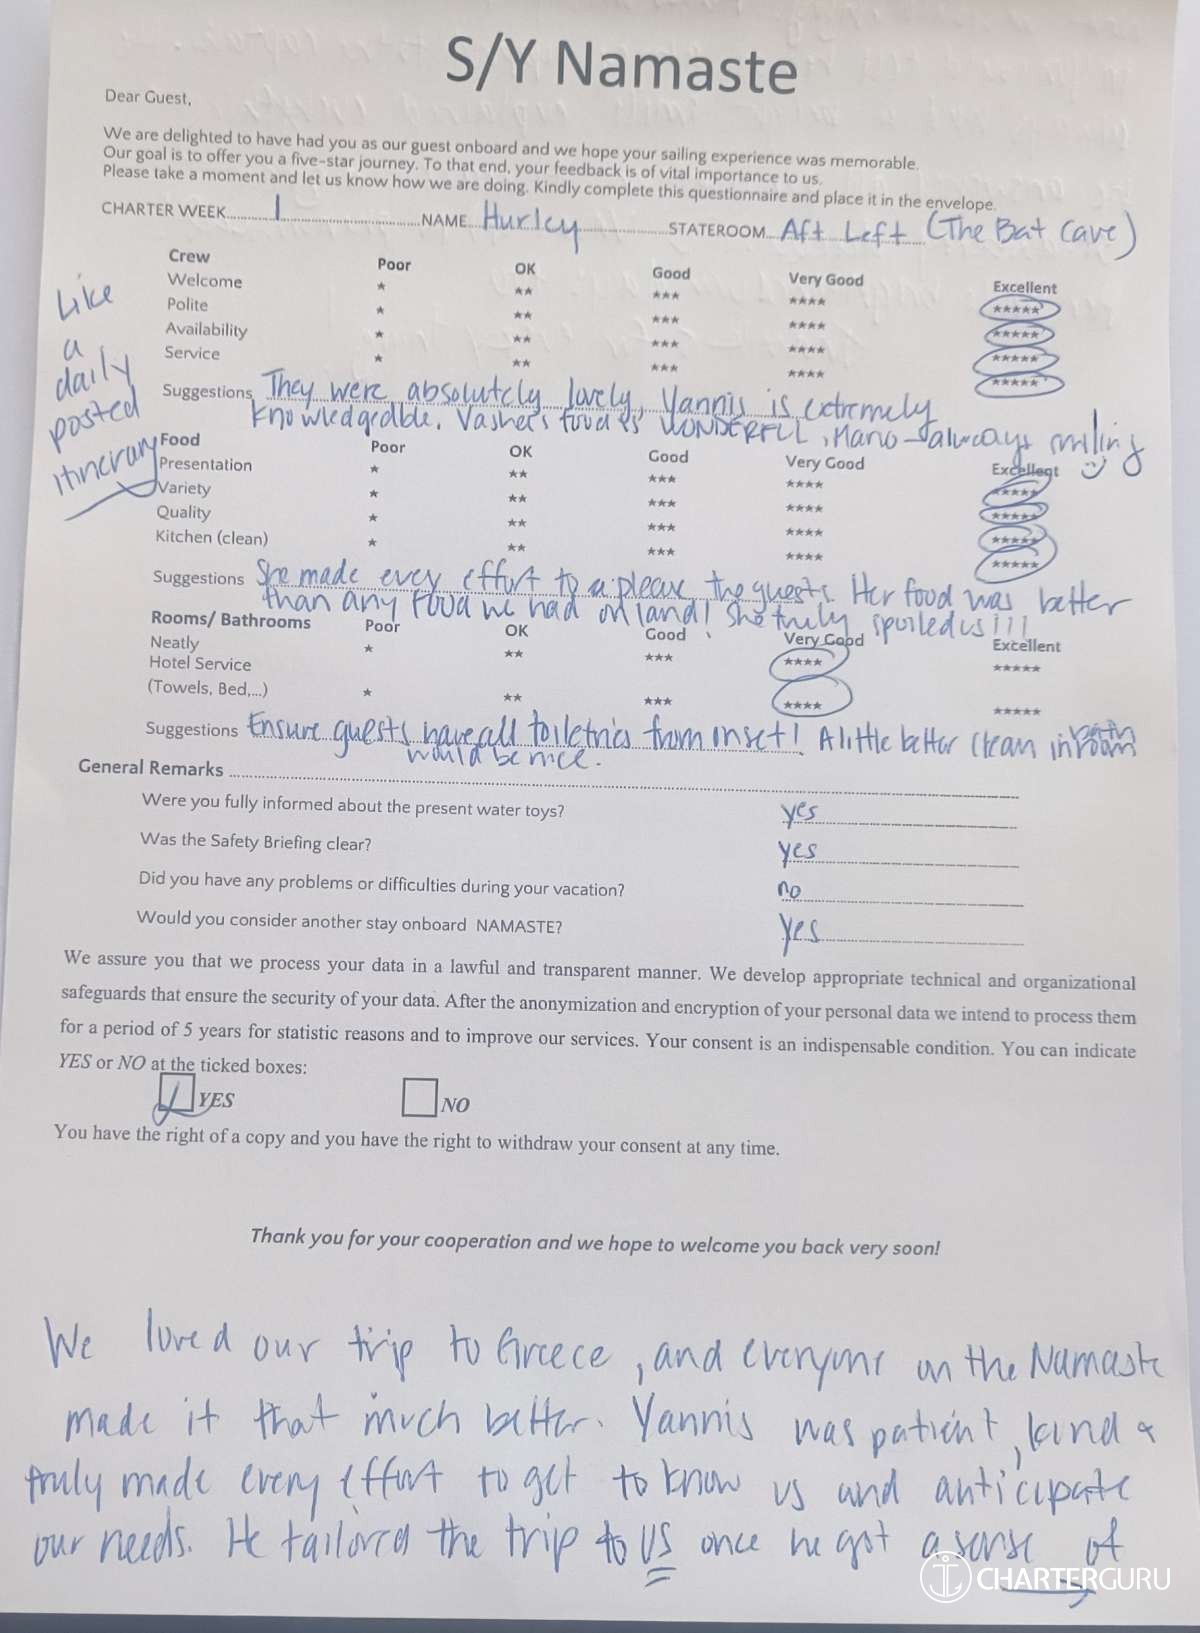 S/Y Namaste
Dear Guest,
We are delighted to have had you as our guest onboard and we hope your sailing experience was memorable.
Our goal is to offer you a five-star journey. To that end, your feedback is of vital importance to us.
Please take a moment and let us know how we are doing. Kindly complete this questionnaire and place it in the envelope.
CHARTER WEEK 1 NAME Hurley STATEROOM Aft Left (The Bat Cave)
Crew Poor OK Good Very Good Excellent
Welcome * ** *** **** *****
Polite * ** *** **** *****
Availability * ** *** **** *****
Service * ** *** **** *****
Like
a
daily
posted
itinerary
Suggestions They were absolutely lovely, Yannis is extremely
knowledgeable. Vasher's food is WONDERFUL, Mano - always smiling
Food Poor OK Good Very Good Excellent
Presentation * ** *** **** *****
Variety * ** *** **** *****
Quality * ** *** **** *****
Kitchen (clean) * ** *** **** *****
Suggestions She made every effort to please the guests. Her food was better
than any food we had on land! She truly spoiled us!!!
Rooms/ Bathrooms Poor OK Good Very Good Excellent
Neatly * ** *** **** *****
Hotel Service
(Towels, Bed,...) * ** *** **** *****
Suggestions Ensure guests have all toiletries from onset! A little better clean in bathroom
would be nice.
General Remarks
Were you fully informed about the present water toys? yes
Was the Safety Briefing clear? yes
Did you have any problems or difficulties during your vacation? no
Would you consider another stay onboard NAMASTE? Yes
We assure you that we process your data in a lawful and transparent manner. We develop appropriate technical and organizational
safeguards that ensure the security of your data. After the anonymization and encryption of your personal data we intend to process them
for a period of 5 years for statistic reasons and to improve our services. Your consent is an indispensable condition. You can indicate
YES or NO at the ticked boxes:
YES NO
You have the right of a copy and you have the right to withdraw your consent at any time.
Thank you for your cooperation and we hope to welcome you back very soon!
We loved our trip to Greece, and everyone on the Namaste
made it that much better. Yannis was patient, kind &
truly made every effort to get to know us and anticipate
our needs. He tailored the trip to US once he got a sense of
CHARTERGURU